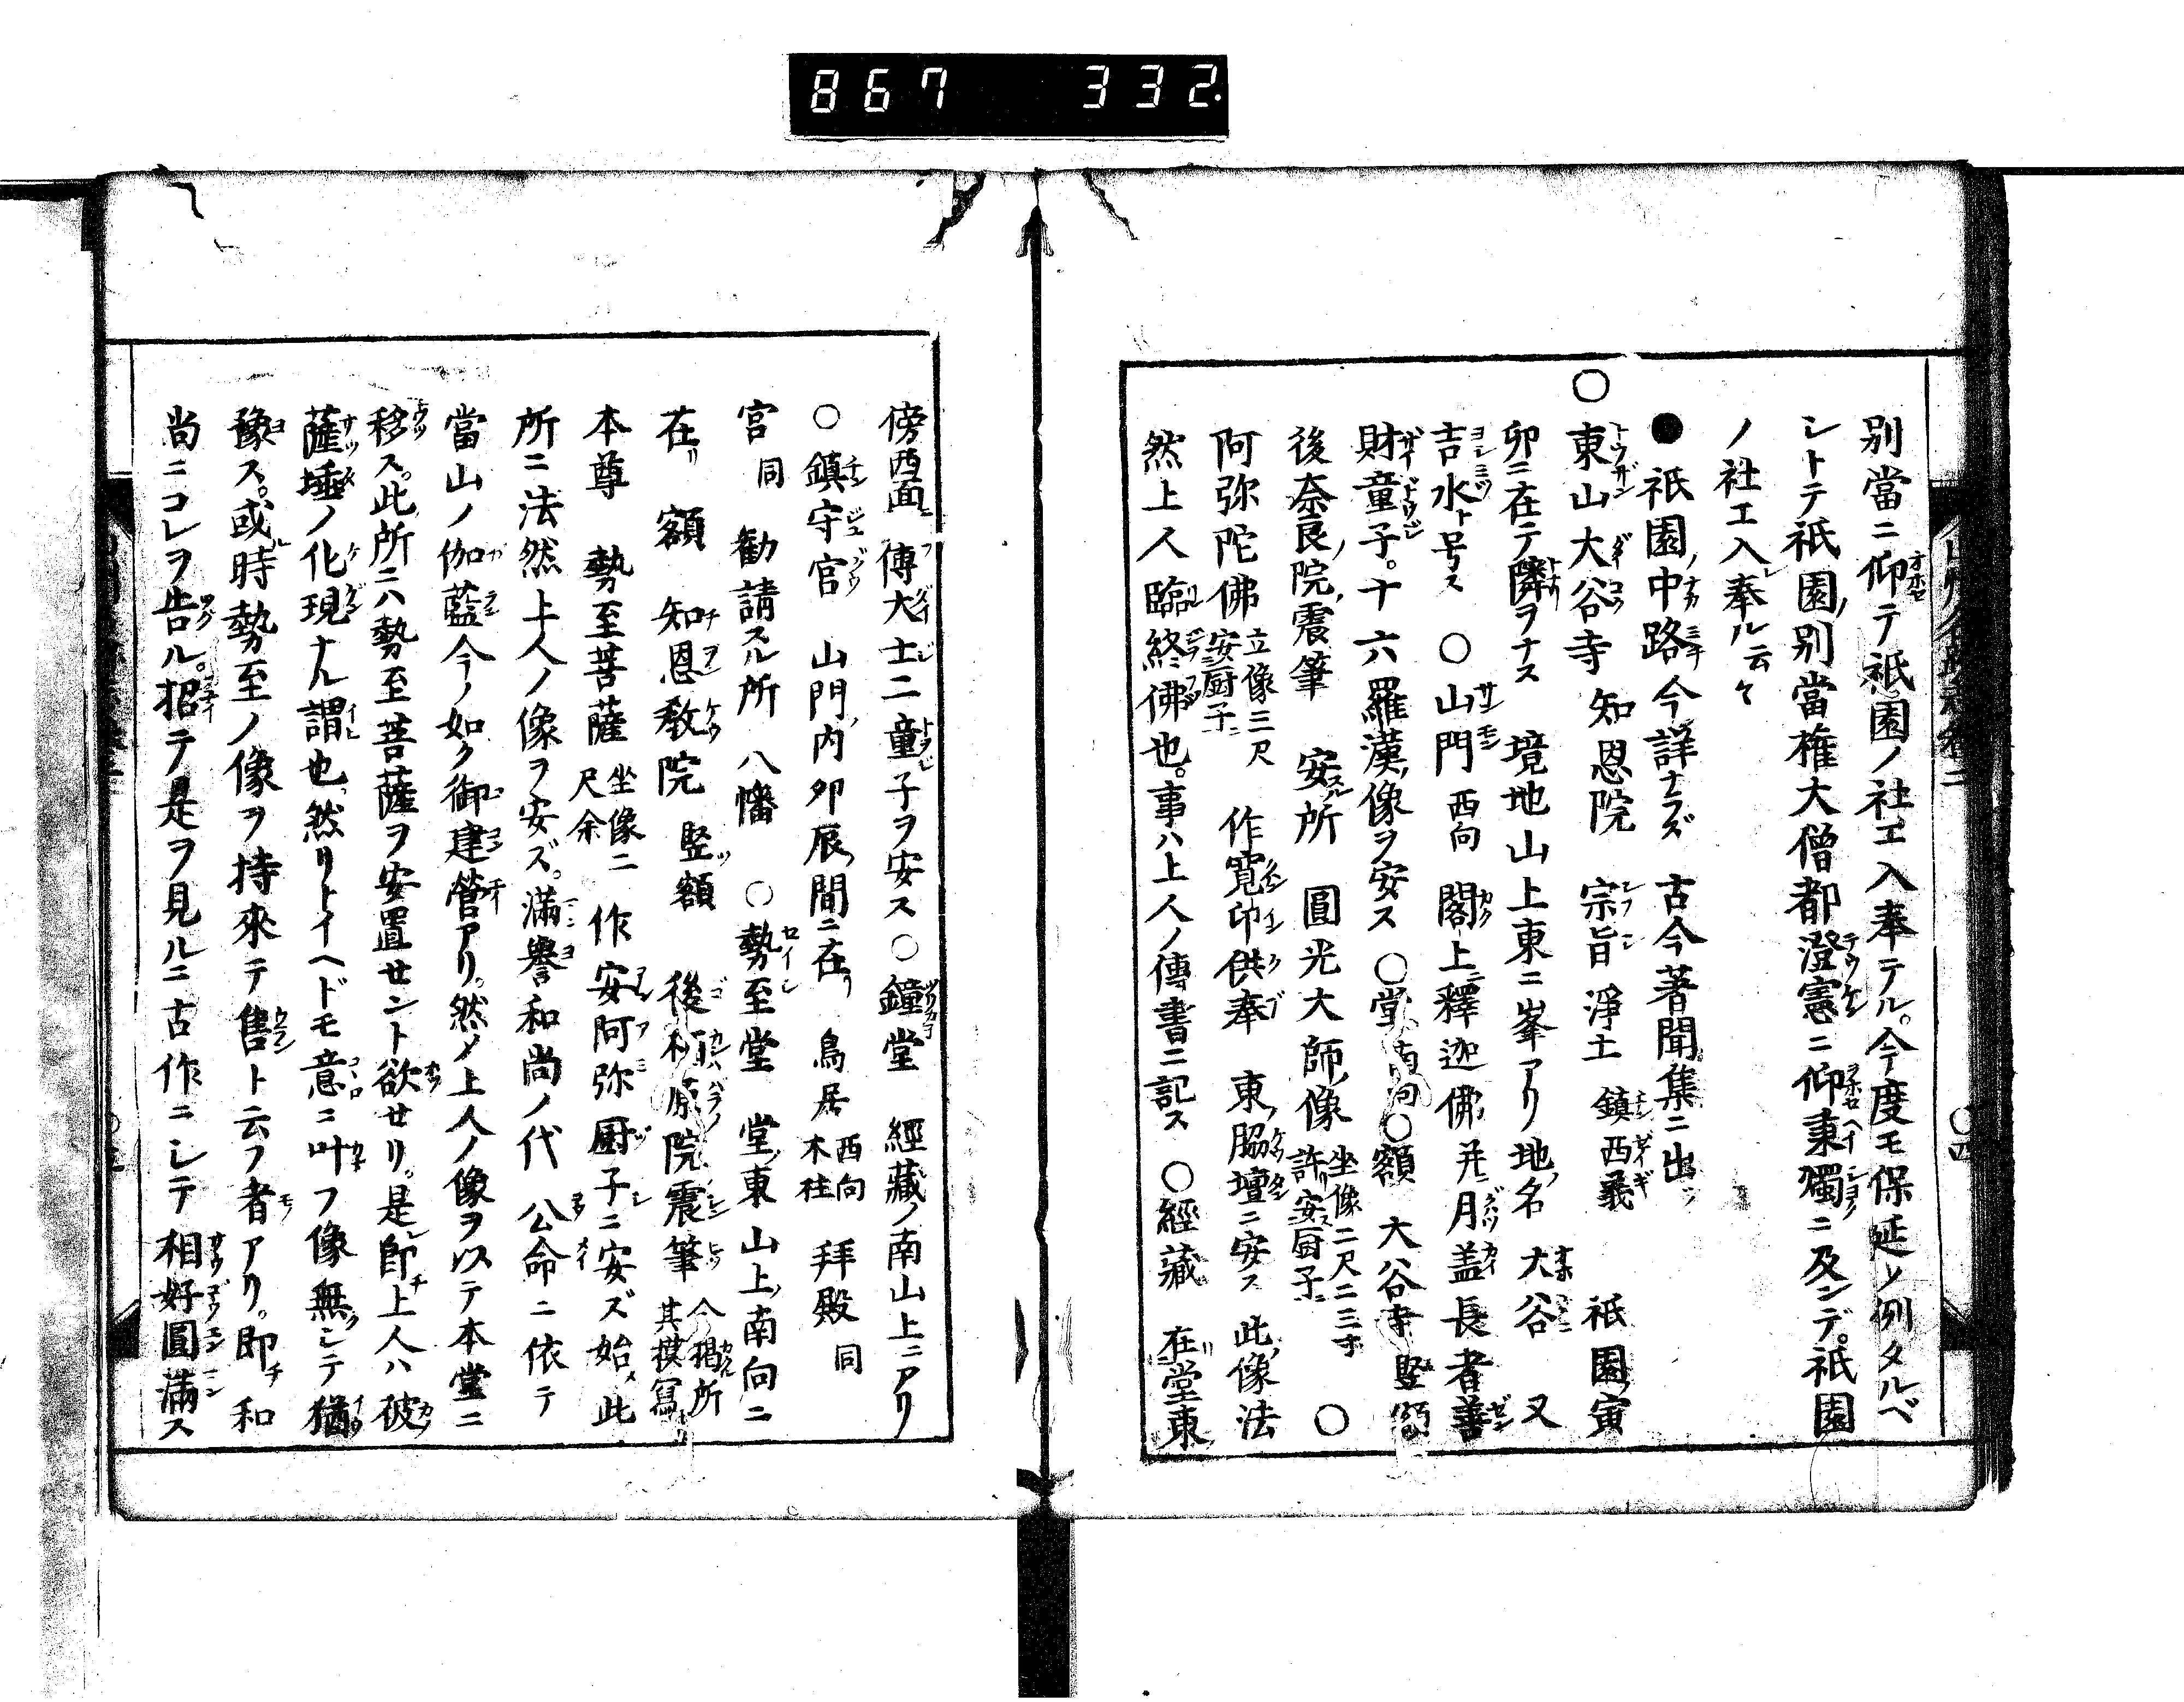 867 332.
別當ニ仰テ祇園ノ社エ入奉テル。今度モ保延ノ例タルベ
シトテ祇園ノ別當権大僧都澄憲ニ仰秉燭ニ及ンデ。祇園
ノ社エ入奉ル云々
●祇園ノ中路今詳ナラズ 古今著聞集ニ出ツ
○東山大谷寺 知恩院 宗旨 淨土 鎮西義 祇園ノ寅
卯ニ在テ隣ヲナス 境地山上東ニ峯アリ地ノ名 大谷 又
吉水ト号ス ○山門 西向 閣上ニ釋迦佛并月盖長者善
財童子。十六羅漢ノ像ヲ安ス ○堂 南向 ○額 大谷寺 竪額
後奈良ノ院ノ震筆 安スル所 圓光大師ノ像 坐像二尺二三寸許リ安ス厨子ニ ○
阿弥陀佛 立像三尺安ス厨子ニ 作寛印供奉 東ノ脇壇ニ安ス 此ノ像法
然上人臨終佛也。事ハ上人ノ傳書ニ記ス ○經藏 在リ堂ノ東
傍西面ニ傅大士二童子ヲ安ス ○鐘堂 經藏ノ南山上ニアリ
○鎮守宮 山門ノ内卯辰ノ間ニ在リ 鳥居 西向木柱 拜殿 同
宮 同 勸請スル所 八幡 ○勢至堂 堂ノ東山上ノ南向ニ
在リ 額 知恩教院 竪ツ額 後柏原ノ院震筆 今掲所其摸寫
本尊 勢至菩薩 坐像二尺余 作安阿弥厨子ニ安ズ始メ此
所ニ法然上人ノ像ヲ安ズ。滿譽和尚ノ代 公命ニ依テ
當山ノ伽藍今ノ如ク御建營アリ。然ノ上人ノ像ヲ以テ本堂ニ
移ス。此所ニハ勢至菩薩ヲ安置セント欲セリ。是レ即チ上人ハ彼
薩埵ノ化現ナル謂也。然リトイヘドモ意ニ叶フ像無シテ猶
豫ス。或ル時勢至ノ像ヲ持來テ售ント云フ者アリ。即チ和
尚ニコレヲ告ル。招テ是ヲ見ルニ古作ニシテ相好圓滿ス